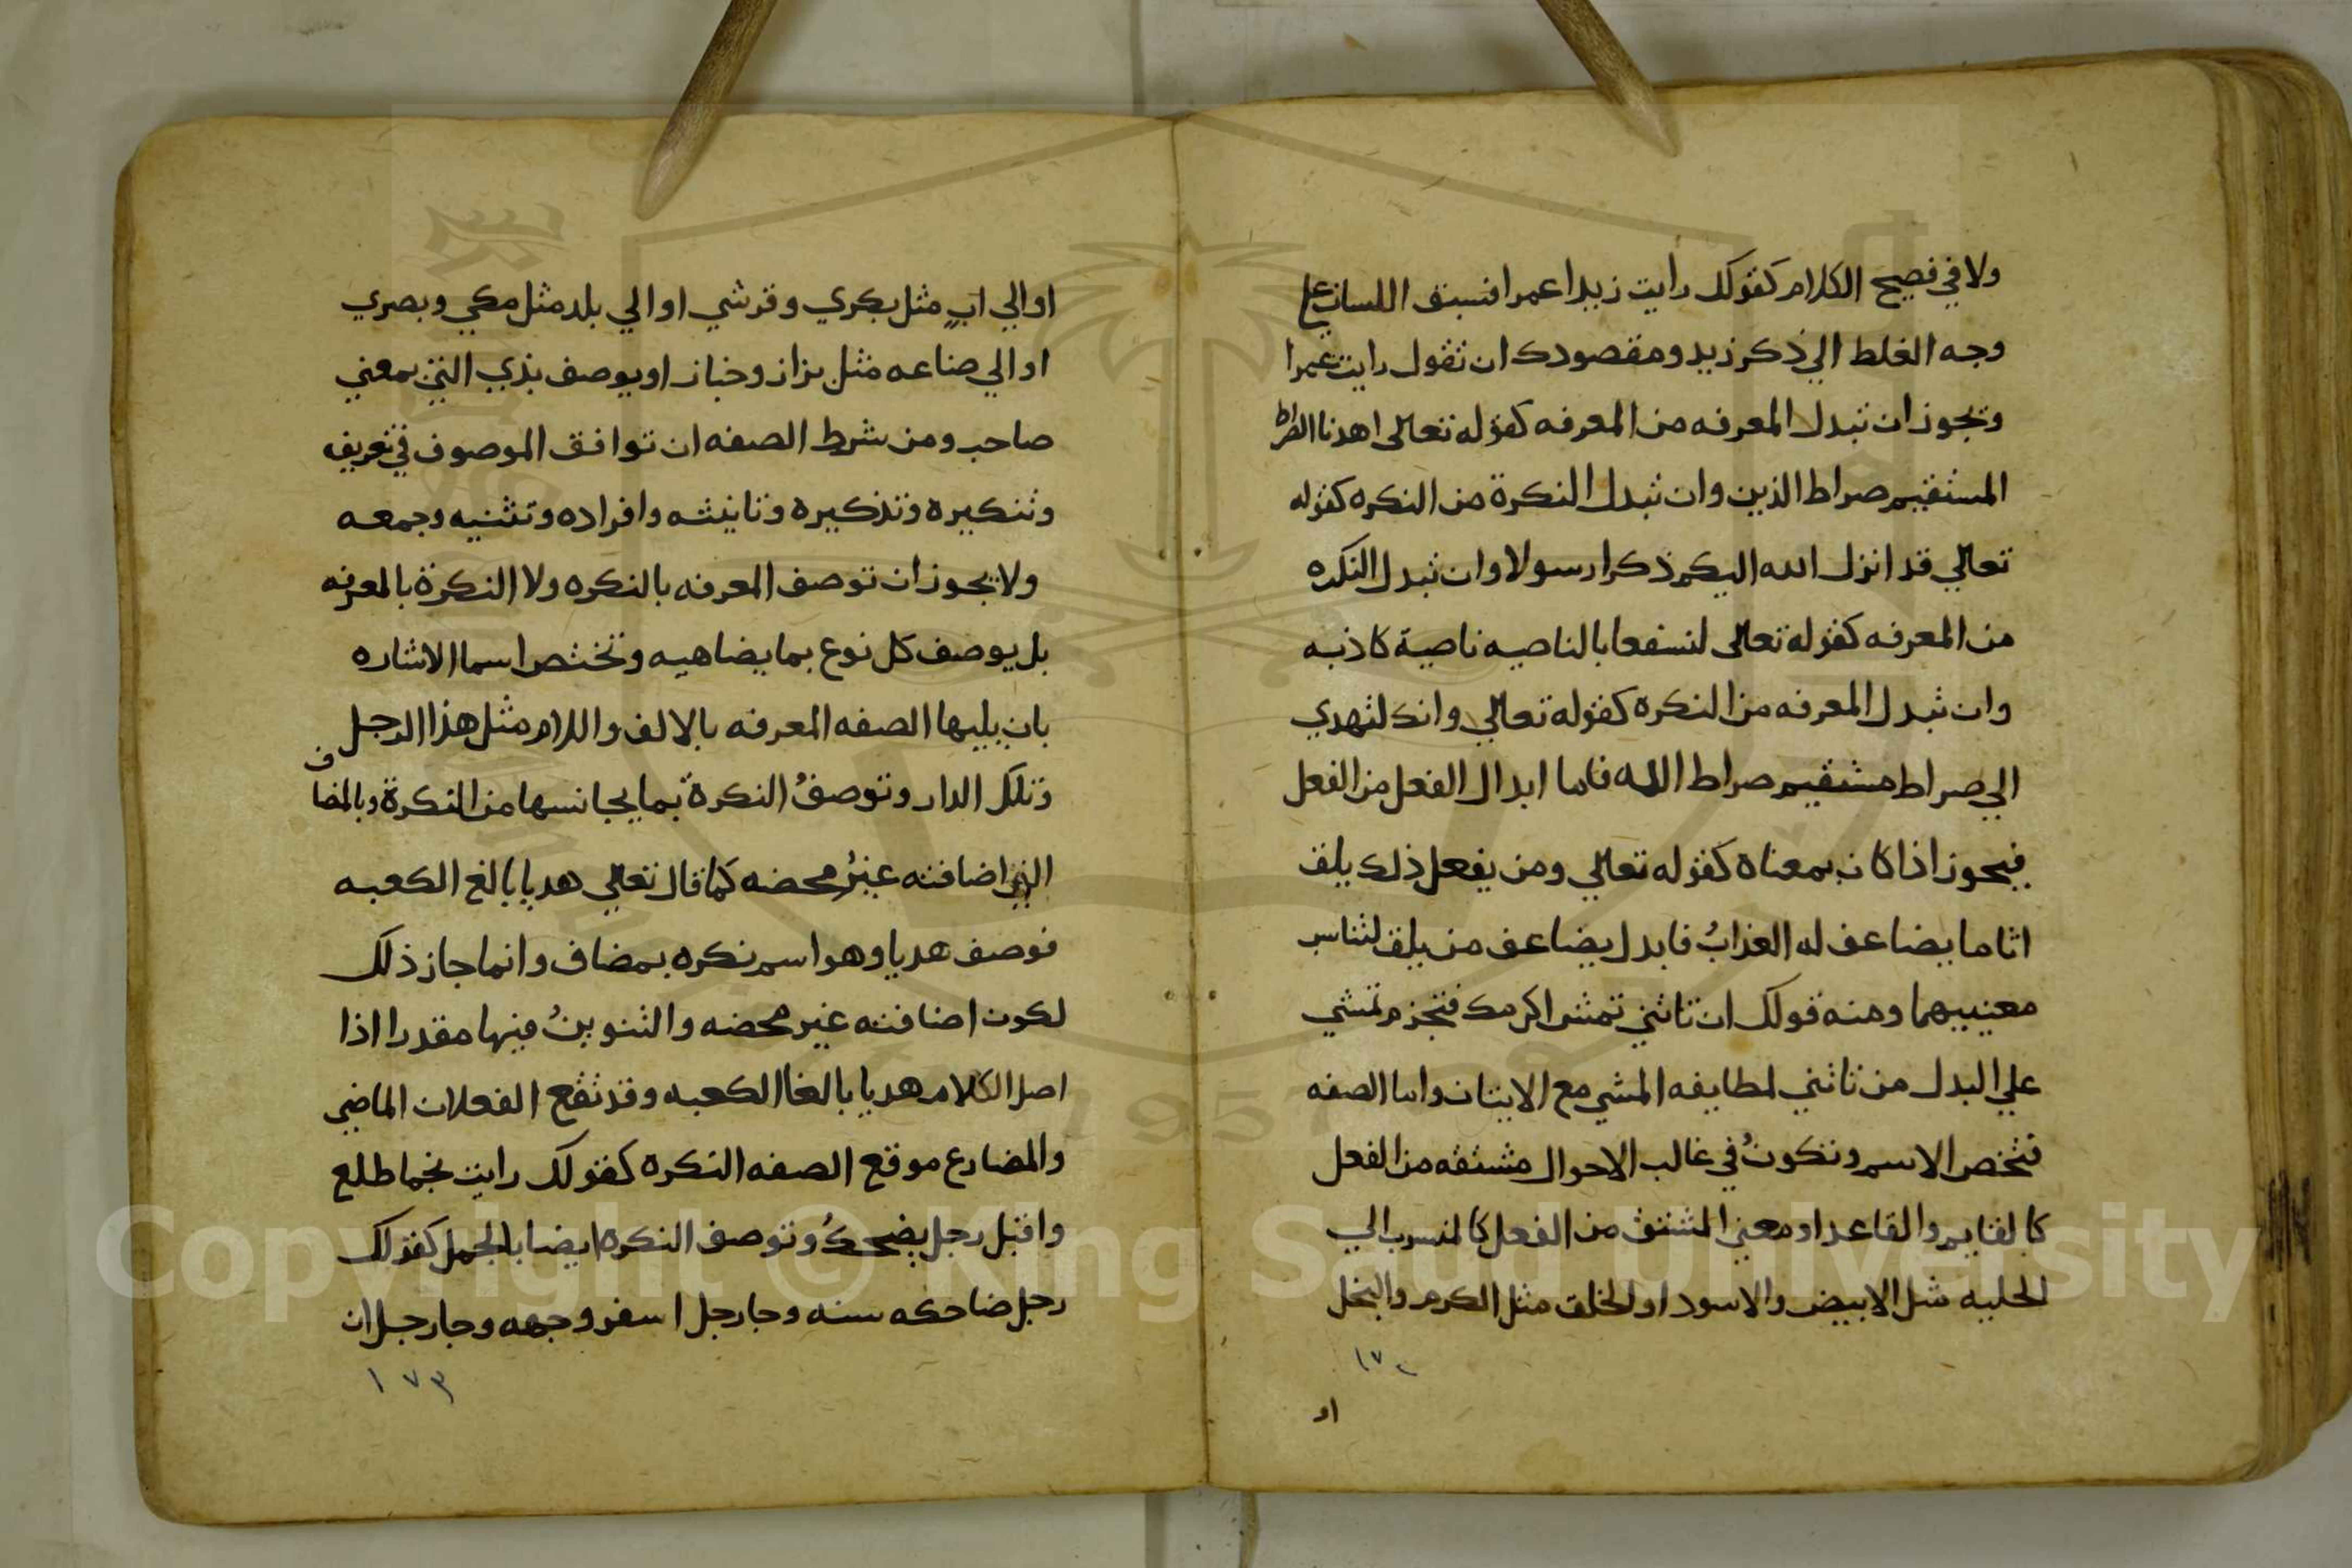 ولا في فصيح الكلام كقولك رأيت زيدا عمرا فسبق اللسان علي
وجه الغلط الي ذكر زيد ومقصودك ان تقول رايت عمرا
وتجوز ان تبدل المعرفه من المعرفه كقوله تعالى اهدنا الصراط
المستقيم صراط الذين وان تبدل النكرة من النكره كقوله
تعالي قد انزل الله اليكم ذكرا رسولا وان تبدل النكره
من المعرفه كقوله تعالى لنسفعا بالناصيه ناصية كاذبه
وان تبدل المعرفه من النكره كقوله تعالي وانك لتهدي
الي صراط مستقيم صراط الله فاما ابدال الفعل من الفعل
فيجوز اذا كان بمعناه كقوله تعالي ومن يفعل ذلك يلق
اثاما يضاعف له العذابُ فابدل يضاعف من يلق لتناسب
معنييهما ومنه قولك ان تاتني تمش اكرمك فتجزم تمشي
علي البدل من تاتني لمطابقه المشي مع الاتيان واما الصفه
فتختص الاسم وتكونُ في غالب الاحوال مشتقه من الفعل
كالقايم والقاعد او معني المشتق من الفعل كالمنسوب الي
الحليه مثل الابيض والاسود او الخلق مثل الكرم والبخل
١٧٢
او
او الي ابٍ مثل بكري وقرشي او الي بلد مثل مكي وبصري
او الي صناعه مثل بزاز وخباز او يوصف بذي التي بمعني
صاحب ومن شرط الصفه ان توافق الموصوف في تعريفه
وتنكيره وتذكيره وتانيثه وافراده وتثنيه وجمعه
ولا يجوز ان توصف المعرفه بالنكره ولا النكرة بالمعرفه
بل يوصف كل نوع بما يضاهيه وتختص اسما الاشاره
بان يليها الصفه المعرفه بالالف واللام مثل هذا الرجل
وتلك الدار وتوصفُ النكرة بما يجانسها من النكرة وبالمضاف
التي اضافته غيرُ محضه كما قال تعالي هديا بالغ الكعبه
فوصف هديا وهو اسم نكره بمضاف وانما جاز ذلك
لكون اضافته غير محضه والتنوينُ فيها مقدرا اذا
اصل الكلام هديا بالغا الكعبه وقد تقع الفعلان الماضي
والمضارع موقع الصفه النكره كقولك رايت نجما طلع
واقبل رجل يضحكُ وتوصف النكره ايضا بالجمل كقولك
رجل ضاحكه سنه وجا رجل اسفر وجهه وجا رجل ان
١٧٣
Copyright © King Saud University
1957